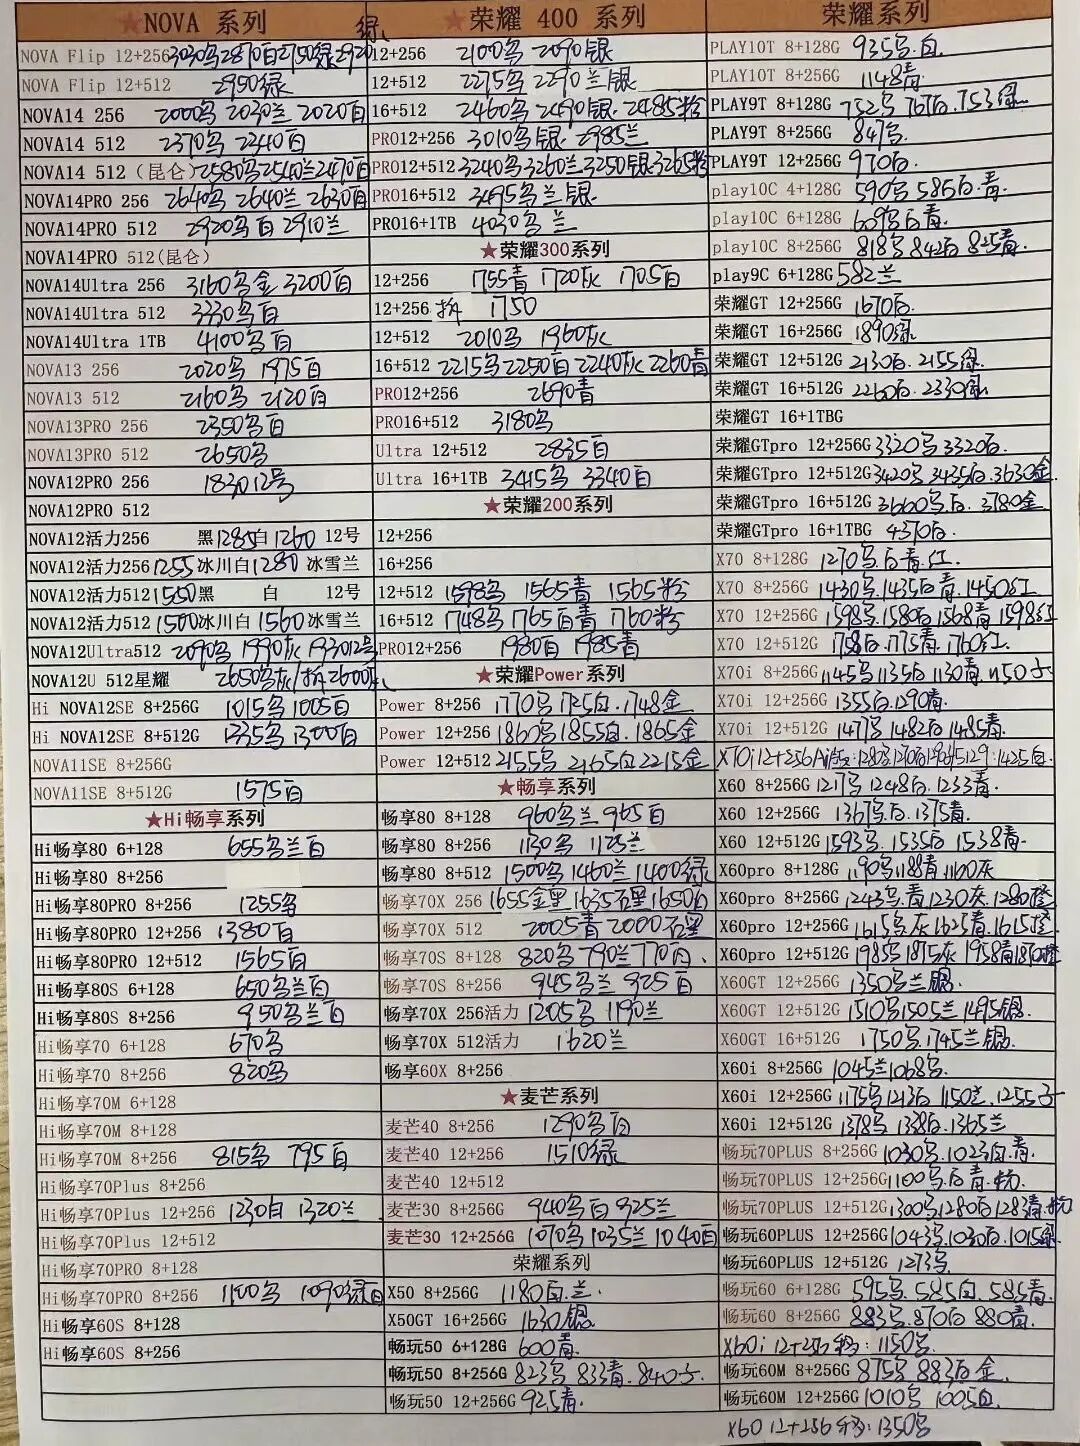 ★NOVA 系列
绿
NOVA Flip 12+256 3030乌2870白2750绿2920
NOVA Flip 12+512 2950绿
NOVA14 256 2000乌 2030兰 2020白
NOVA14 512 2370乌 2340白
NOVA14 512（昆仑）2580乌2540兰2470白
NOVA14PRO 256 2640乌 2640兰 2630白
NOVA14PRO 512 2920乌白 2910兰
NOVA14PRO 512(昆仑)
NOVA14Ultra 256 3160乌金 3200白
NOVA14Ultra 512 3330乌白
NOVA14Ultra 1TB 4100乌白
NOVA13 256 2020乌 1975白
NOVA13 512 2160乌 2120白
NOVA13PRO 256 2350乌白
NOVA13PRO 512 2650乌
NOVA12PRO 256 1830 12号
NOVA12PRO 512
NOVA12活力256 黑1285白1260 12号
NOVA12活力256 1255冰川白1280 冰雪兰
NOVA12活力512 1550黑 白 12号
NOVA12活力512 1500冰川白1560冰雪兰
NOVA12Ultra512 2090乌 1990灰 1930 12号
NOVA12U 512星耀 2650乌灰/拆2600灰
Hi NOVA12SE 8+256G 1015乌1005白
Hi NOVA12SE 8+512G 1335乌1300白
NOVA11SE 8+256G
NOVA11SE 8+512G 1575白
★Hi畅享系列
Hi畅享80 6+128 655乌兰白
Hi畅享80 8+256
Hi畅享80PRO 8+256 1255乌
Hi畅享80PRO 12+256 1380白
Hi畅享80PRO 12+512 1565白
Hi畅享80S 6+128 650乌兰白
Hi畅享80S 8+256 950乌兰白
Hi畅享70 6+128 670乌
Hi畅享70 8+256 820乌
Hi畅享70M 6+128
Hi畅享70M 8+128
Hi畅享70M 8+256 815乌 795白
Hi畅享70Plus 8+256
Hi畅享70Plus 12+256 1230白 1320兰
Hi畅享70Plus 12+512
Hi畅享70PRO 8+128
Hi畅享70PRO 8+256 1100乌 1090绿白
Hi畅享60S 8+128
Hi畅享60S 8+256
★荣耀 400 系列
12+256 2100乌 2090银
12+512 2275乌 2290兰银
16+512 2460乌 2490银 2485粉
PRO12+256 3010乌银 2985兰
PRO12+512 3240乌3260兰3250银3265粉
PRO16+512 3495乌兰银
PRO16+1TB 4030乌兰
★荣耀300系列
12+256 1755青 1720灰 1705白
12+256 拆 1750
12+512 2010乌 1960灰
16+512 2215乌2250白2240灰2260青
PRO12+256 2690青
PRO16+512 3180乌
Ultra 12+512 2835白
Ultra 16+1TB 3415乌 3340白
★荣耀200系列
12+256
16+256
12+512 1598乌 1565青 1565粉
16+512 1748乌 1765白青 1760粉
PRO12+256 1980白 1985青
★荣耀Power系列
Power 8+256 1770乌1725白.1748金
Power 12+256 1860乌1855白.1865金
Power 12+512 2155乌 2165白2215金
★畅享系列
畅享80 8+128 960乌兰 965白
畅享80 8+256 1130乌 1125兰
畅享80 8+512 1500乌1460兰1400绿
畅享70X 256 1655金黑1635石墨1650白
畅享70X 512 2005青2000石墨
畅享70S 8+128 820乌790兰770白
畅享70S 8+256 945乌兰 925白
畅享70X 256活力 1205乌 1190兰
畅享70X 512活力 1620兰
畅享60X 8+256
★麦芒系列
麦芒40 8+256 1290乌白
麦芒40 12+256 1510绿
麦芒40 12+512
麦芒30 8+256G 940乌白925兰
麦芒30 12+256G 1070乌1035兰1040白
荣耀系列
X50 8+256G 1180白.兰
X50GT 16+256G 1630银
畅玩50 6+128G 600青
畅玩50 8+256G 823乌 833青.840
畅玩50 12+256G 925青
荣耀系列
PLAY10T 8+128G 935乌.白
PLAY10T 8+256G 1148青
PLAY9T 8+128G 752乌 767白.753绿
PLAY9T 8+256G 847乌
PLAY9T 12+256G 970白
play10C 4+128G 590乌 585白.青
play10C 6+128G 609乌白青
play10C 8+256G 818乌842白825青
play9C 6+128G 582兰
荣耀GT 12+256G 1670白
荣耀GT 16+256G 1890绿
荣耀GT 12+512G 2130白.2155绿
荣耀GT 16+512G 2260白.2330绿
荣耀GT 16+1TBG
荣耀GTpro 12+256G 3320乌3320白
荣耀GTpro 12+512G 3420乌3435白.3630金
荣耀GTpro 16+512G 3660乌白.3780金
荣耀GTpro 16+1TBG 4370白
X70 8+128G 1270乌白青.红
X70 8+256G 1430乌.1435白青.1450红
X70 12+256G 1598乌.1580白1568青1598红
X70 12+512G 1758白.1775青.1760红
X70i 8+256G 1145乌1135白1130青1150
X70i 12+256G 1355白1290青
X70i 12+512G 1477乌1482白1485青
X70i12+256 1425白
X60 8+256G 1217乌1248白1233青
X60 12+256G 1367乌白.1375青
X60 12+512G 1593乌.1535白1538青
X60pro 8+128G 1190乌1188青1160灰
X60pro 8+256G 1243乌.青1230灰.1280橙
X60pro 12+256G 1615乌灰1625青1615橙
X60pro 12+512G 1985乌1875灰1958青1870橙
X60GT 12+256G 1350乌兰银
X60GT 12+512G 1510乌1505兰1495银
X60GT 16+512G 1750乌1745兰银
X60i 8+256G 1045兰1068乌
X60i 12+256G 1175乌1213白1150兰.1255
X60i 12+512G 1378乌1338白1365兰
畅玩70PLUS 8+256G 1030乌1023白.青
畅玩70PLUS 12+256G 1100乌白青
畅玩70PLUS 12+512G 1300乌1280白1283青
畅玩60PLUS 12+256G 1043乌1030白1015绿
畅玩60PLUS 12+512G 1273乌
畅玩60 6+128G 595乌585白.585青
畅玩60 8+256G 883乌870白880青
X60i 12+256移:1150乌
畅玩60M 8+256G 875乌883白金
畅玩60M 12+256G 1010乌1005白
X60 12+256移:1350乌